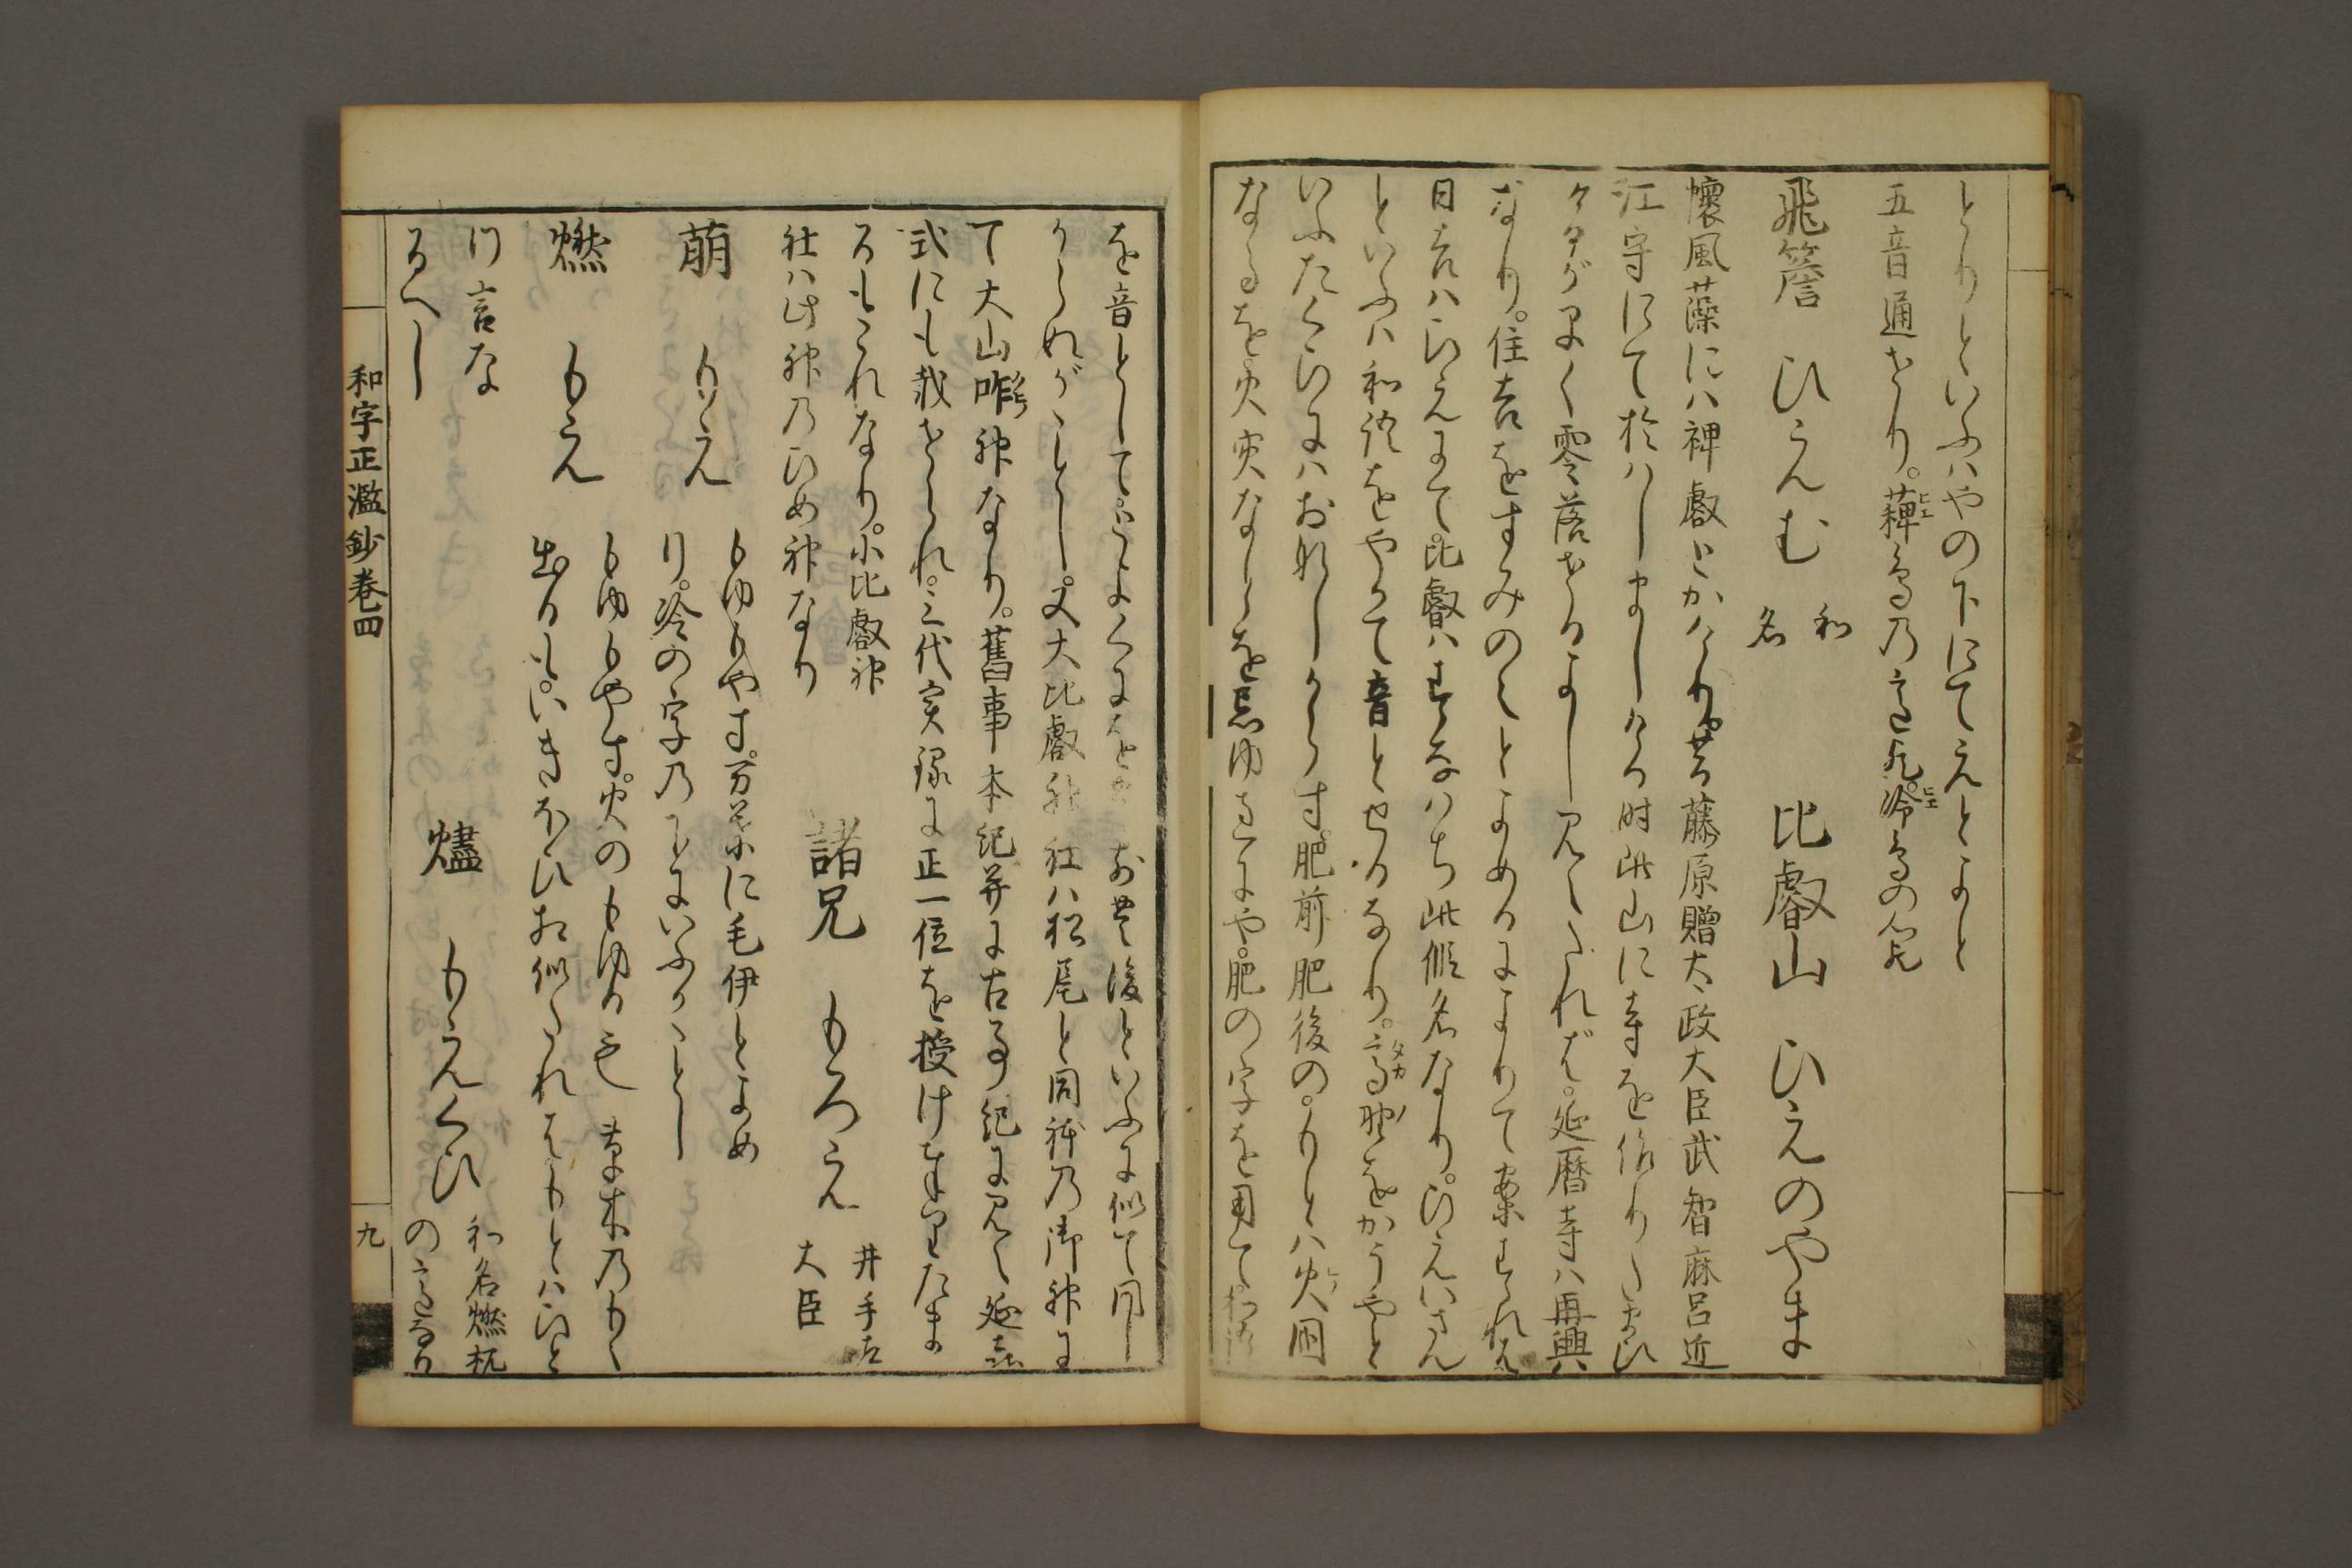 とりといふハやの下にてえとよと
五音通せり。稗鳥乃
飛簷 ひえむ 和名
比叡山 ひえのやま
懐風藻にハ裨叡とかけり。昔藤原贈太政大臣武智麻呂近
江守にて於ハしましける時此山に寺を作りたまひ
けるがよく零落せるよし見えたれば。延暦寺ハ再興
なり。住吉をすみのえとよめるによりて案ずれば
日吉ハひえにて比叡ハすなハち此假名なり。ひえいさん
といふハ和語をやかて音とせるなり。高野をかうやと
いふたくひにハおなしからす。肥前肥後のもとハ火国
なるを火災なとを忌ゆゑにや。肥の字を用て和語
を音として 前後といふに似て同し
からぬがことし。又大比叡神社ハ松尾と同神乃御神に
て大山咋神なり。舊事本紀并に古事記に見え延喜
式にも載せられ。三代実録に正一位を授けたま
るもこれなり。小比叡神
社ハ此神乃ひめ神なり
諸兄 もろえ 井手左大臣
萌 もえ もゆもやす。万葉に毛伊とよめ
り。冷の字乃下にいふかことし
燃 もえ もゆもやす。火のもゆるも草木乃もえ
出るも。いきほひ相似たれはもとハひと
つ言な
るへし
燼 もえくひ 和名燃杭
の意なる
和字正濫鈔巻四
九